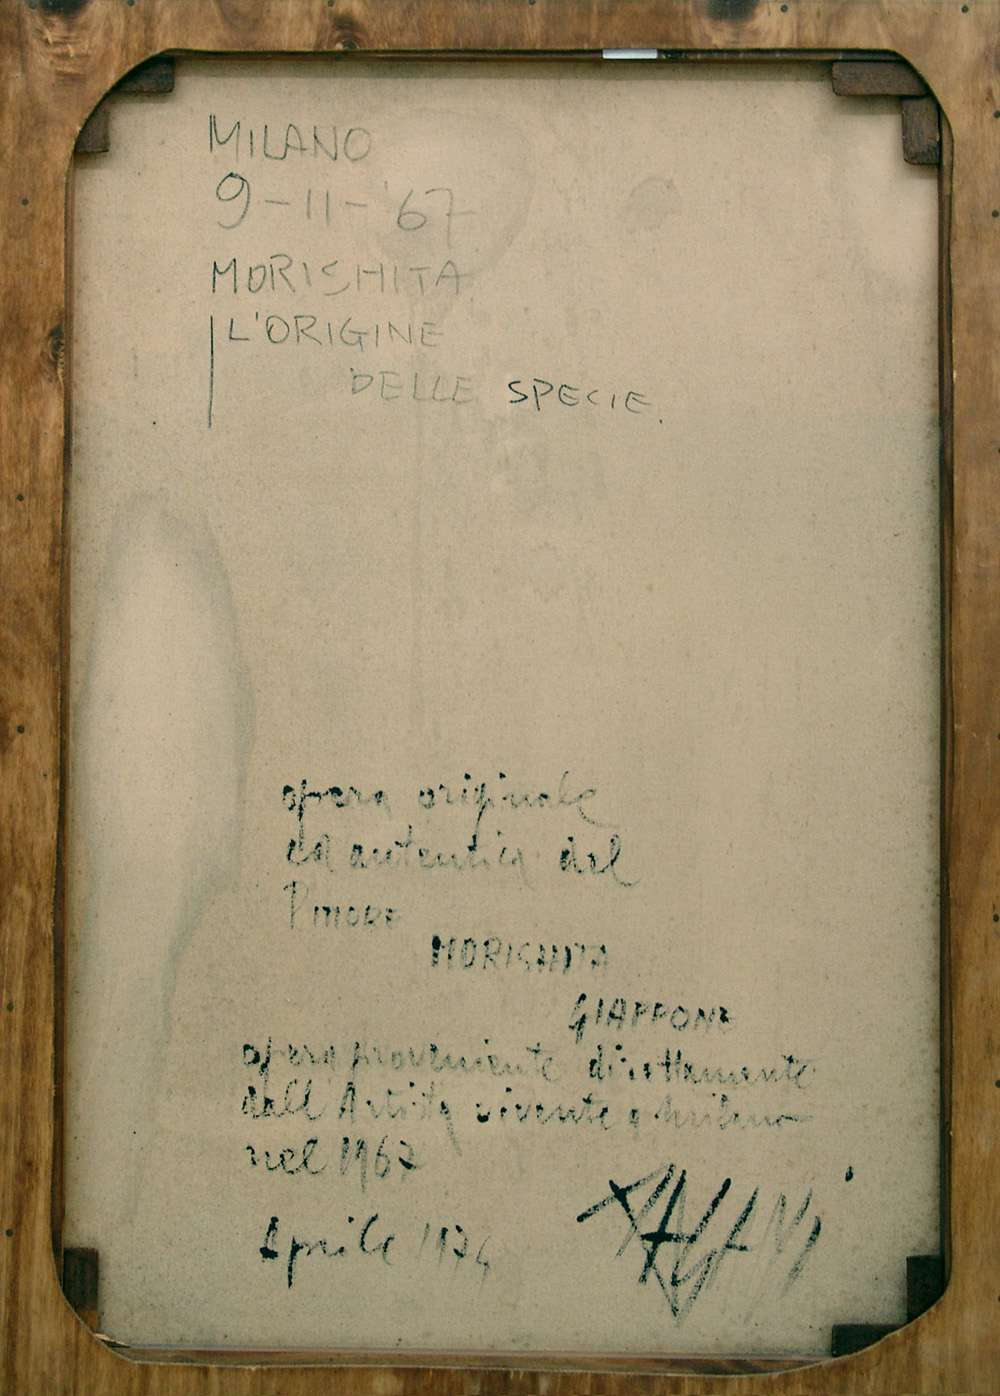 MILANO
9-11-'67
MORISHITA
L'ORIGINE
DELLE SPECIE.
opera originale
ed autentica del
Pittore
MORISHITA
GIAPPONE
opera proveniente direttamente
dall'Artista vivente a Milano
nel 1967
Aprile 1974